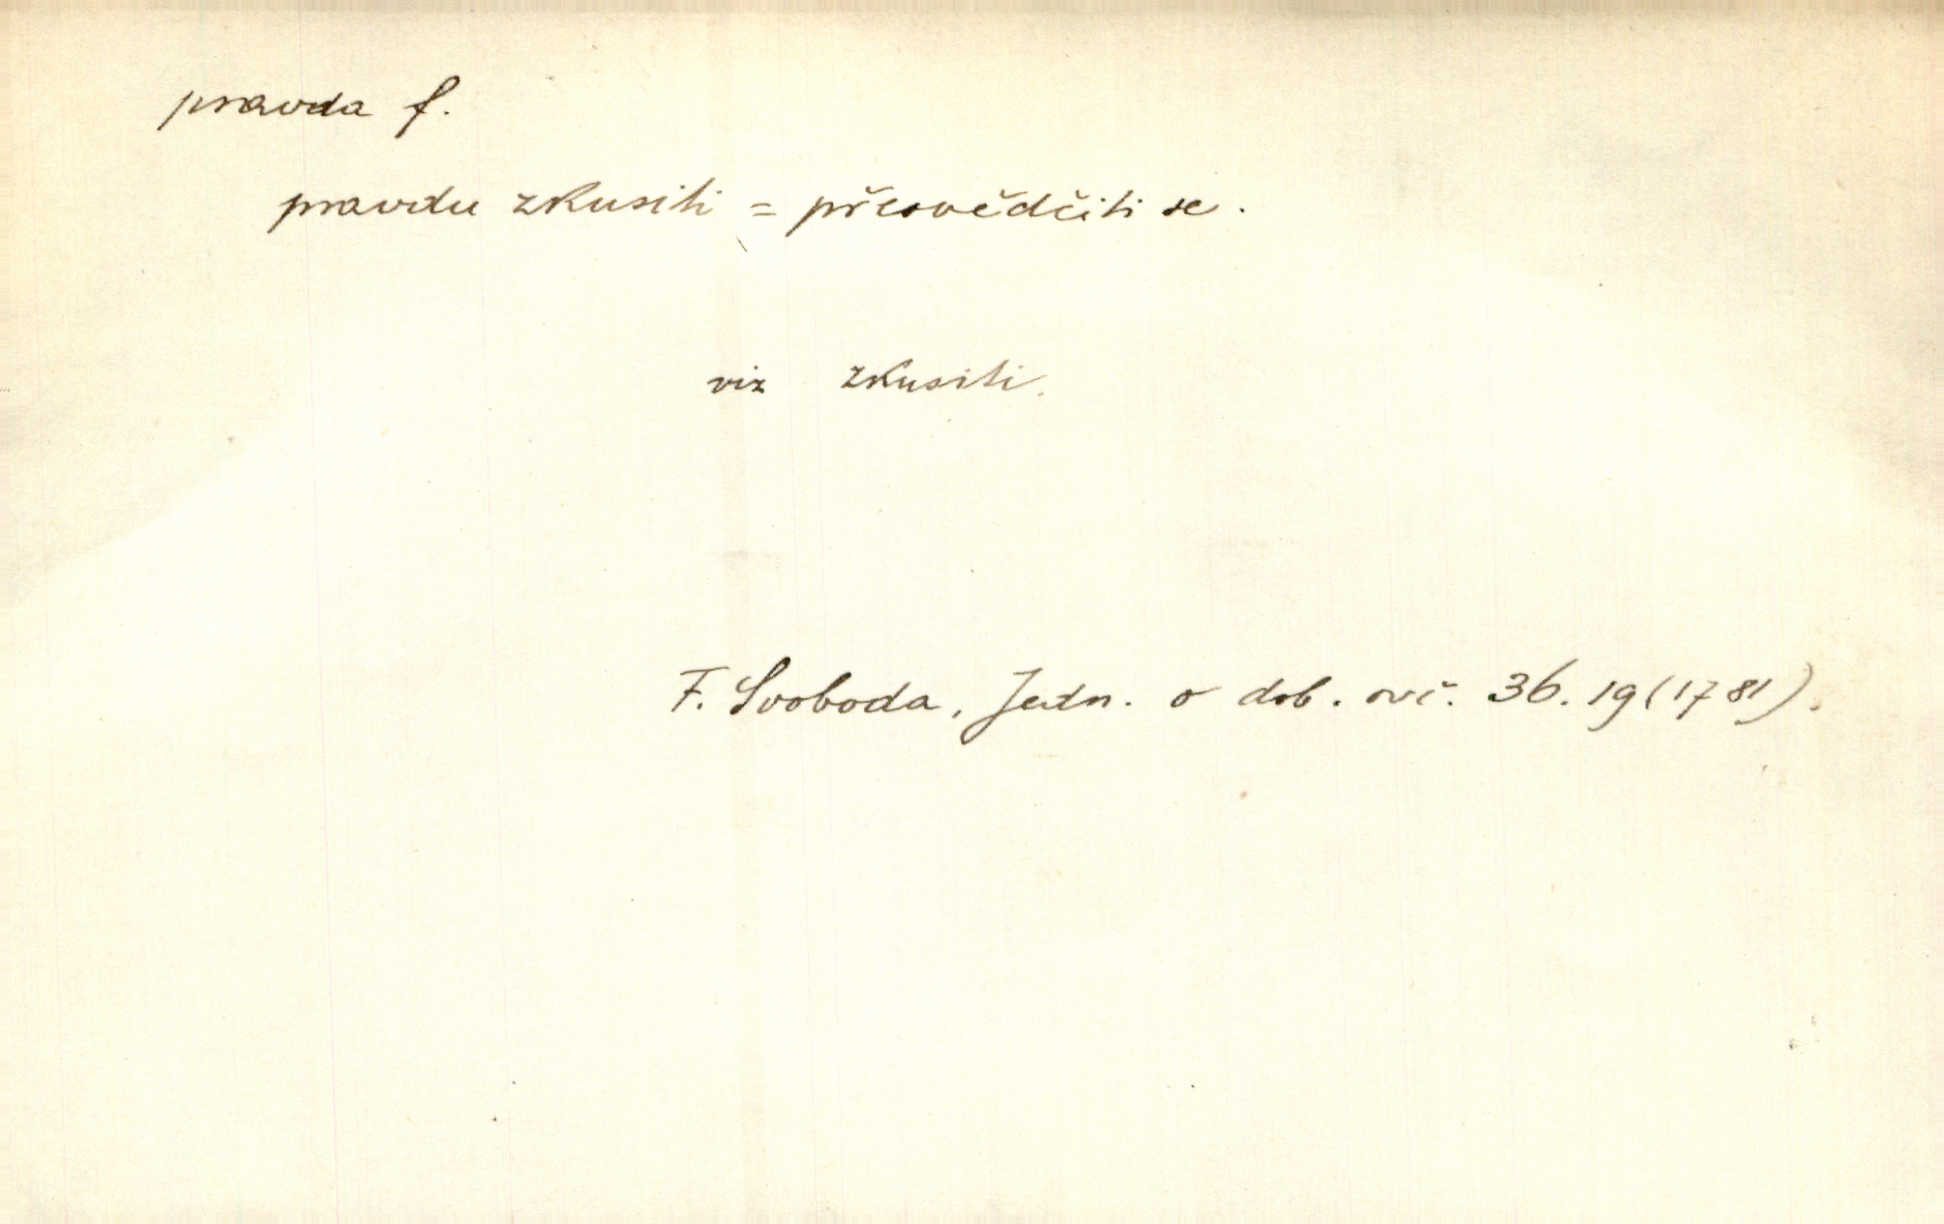 pravda f.
pravdu zkusiti = přesvědčiti se.
viz zkusiti.
F. Svoboda, Jedn. o dob. ovč. 36. 19 (1781).